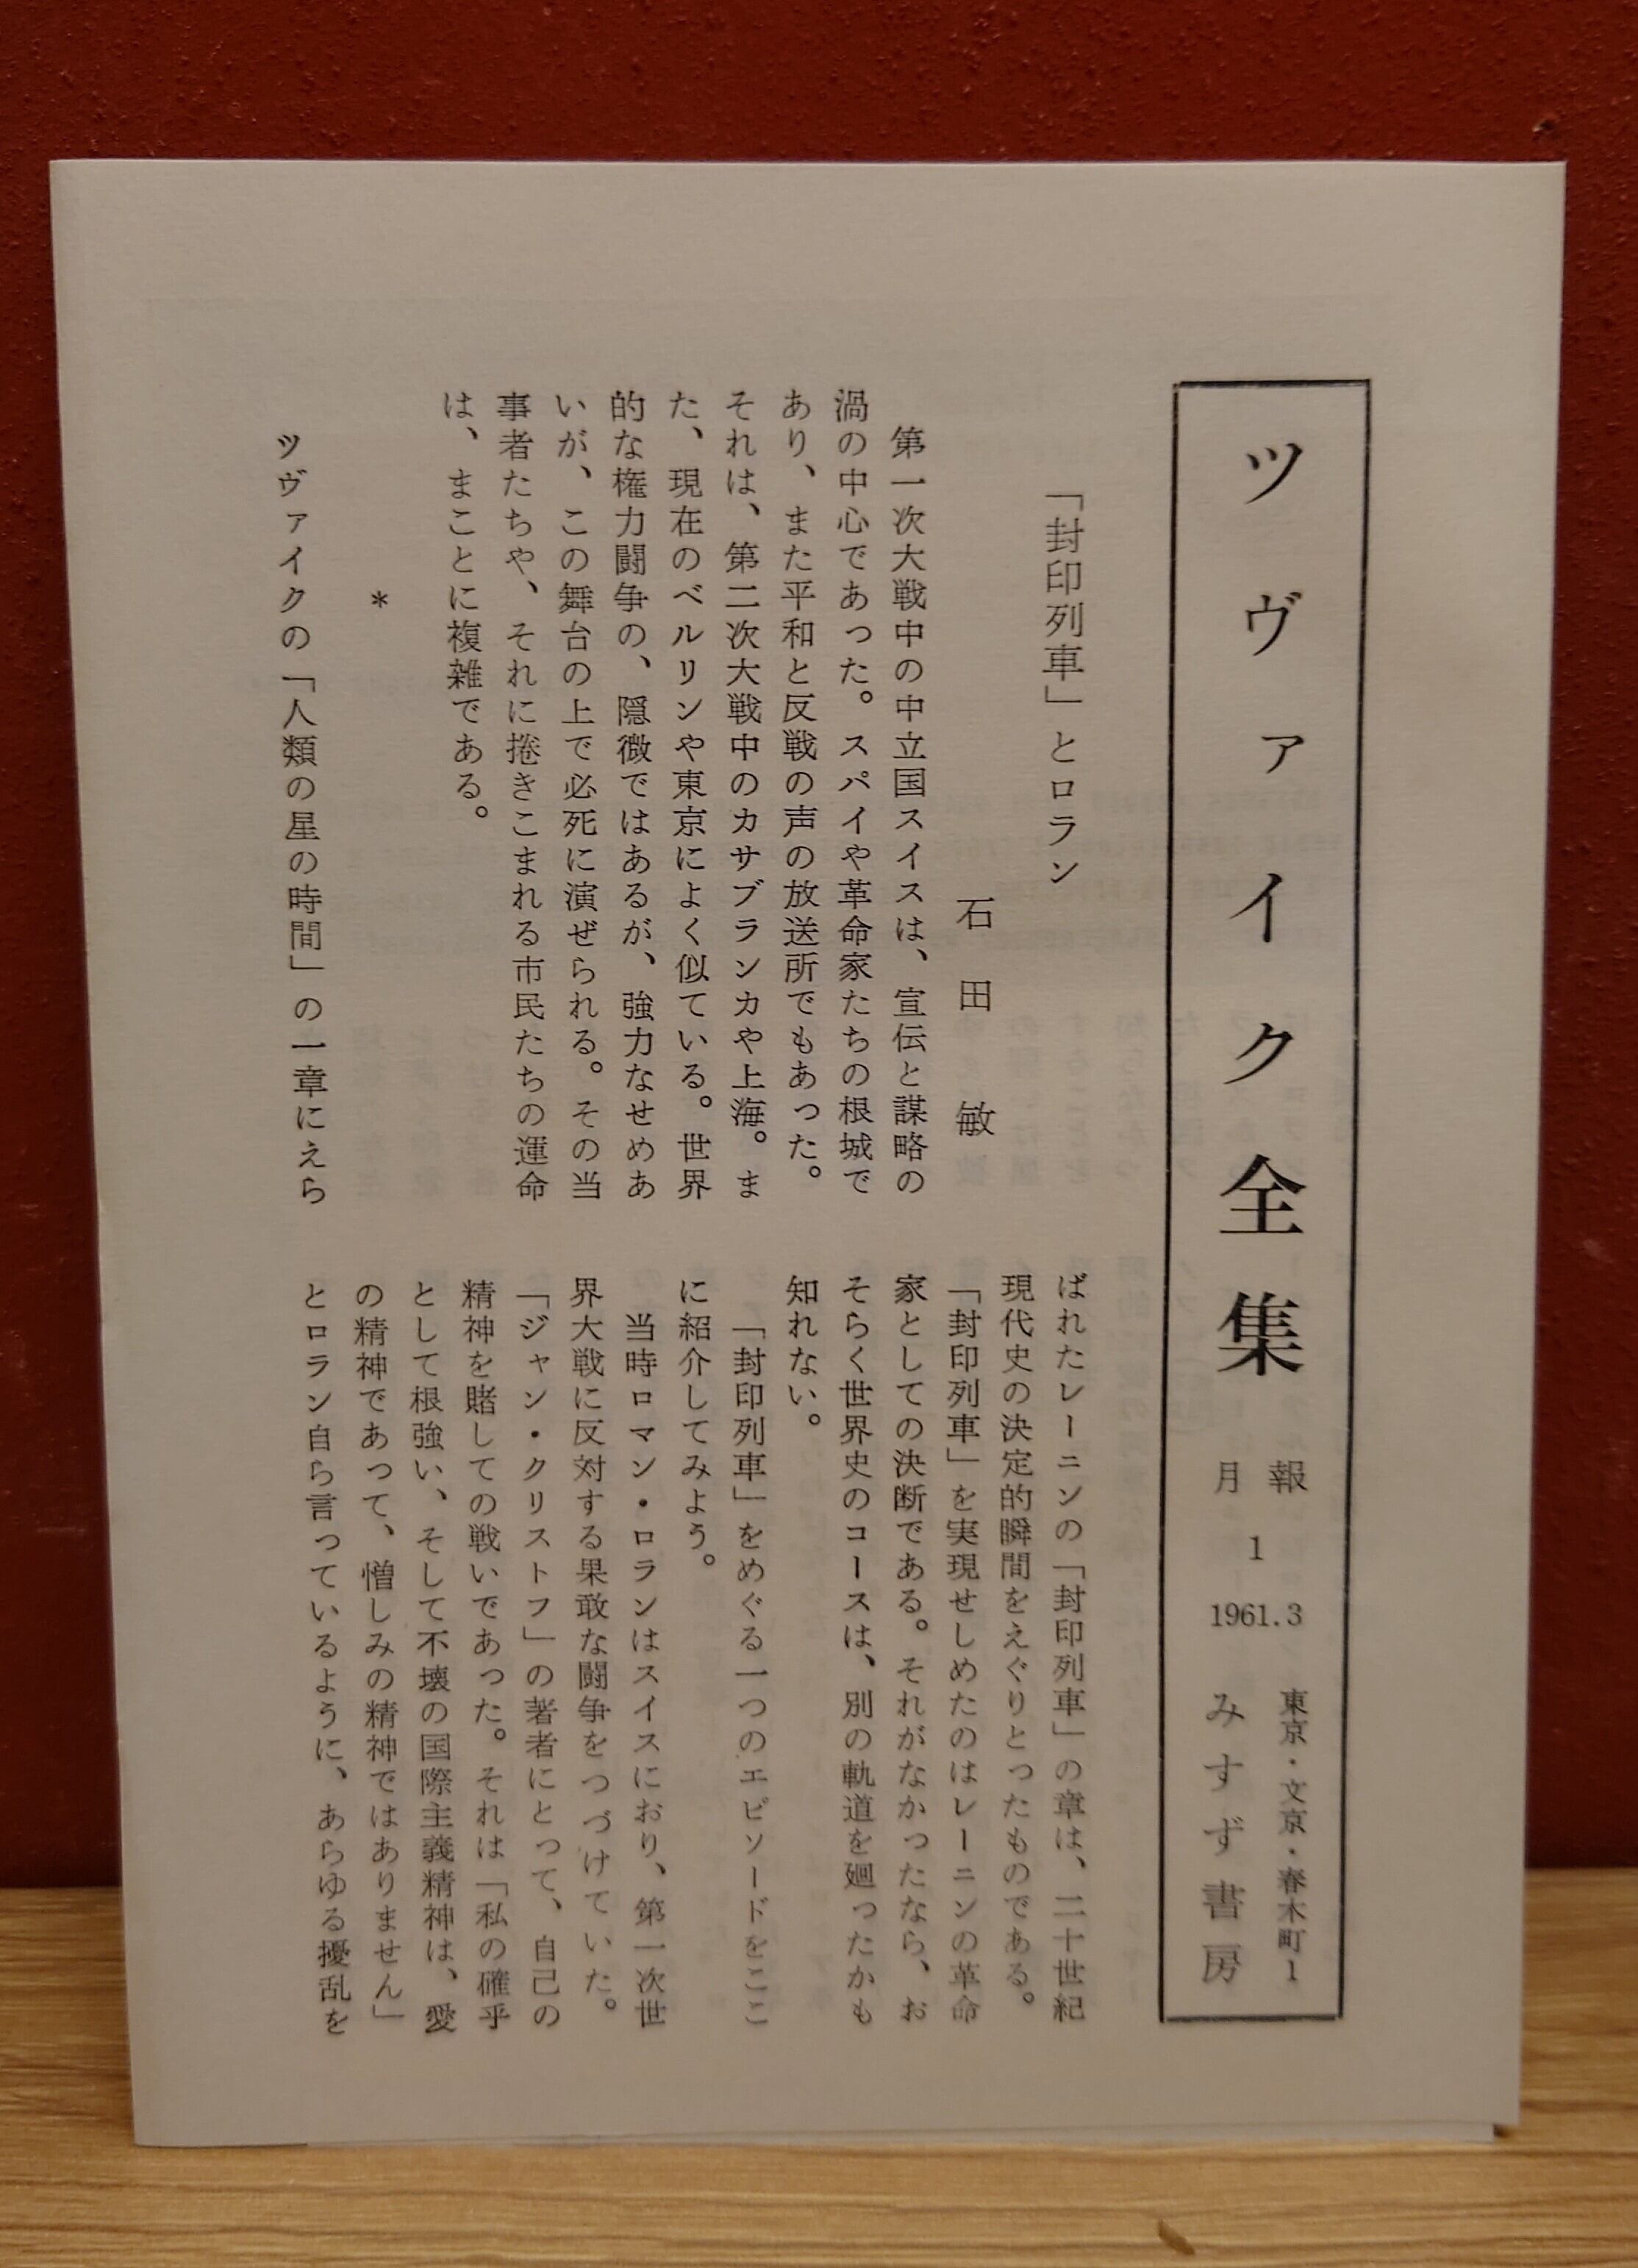 ツヴァイク全集
月報
1
1961.3
東京・文京・春木町1
みすず書房
「封印列車」とロラン
石田 敏
第一次大戦中の中立国スイスは、宣伝と謀略の
渦の中心であった。スパイや革命家たちの根城で
あり、また平和と反戦の声の放送所でもあった。
それは、第二次大戦中のカサブランカや上海。ま
た、現在のベルリンや東京によく似ている。世界
的な権力闘争の、隠微ではあるが、強力なせめあ
いが、この舞台の上で必死に演ぜられる。その当
事者たちや、それに捲きこまれる市民たちの運命
は、まことに複雑である。
*
ツヴァイクの「人類の星の時間」の一章にえら
ばれたレーニンの「封印列車」の章は、二十世紀
現代史の決定的瞬間をえぐりとったものである。
「封印列車」を実現せしめたのはレーニンの革命
家としての決断である。それがなかったなら、お
そらく世界史のコースは、別の軌道を廻ったかも
知れない。
「封印列車」をめぐる一つのエピソードをここ
に紹介してみよう。
当時ロマン・ロランはスイスにおり、第一次世
界大戦に反対する果敢な闘争をつづけていた。
「ジャン・クリストフ」の著者にとって、自己の
精神を賭しての戦いであった。それは「私の確乎
として根強い、そして不壊の国際主義精神は、愛
の精神であって、憎しみの精神ではありません」
とロラン自ら言っているように、あらゆる擾乱を